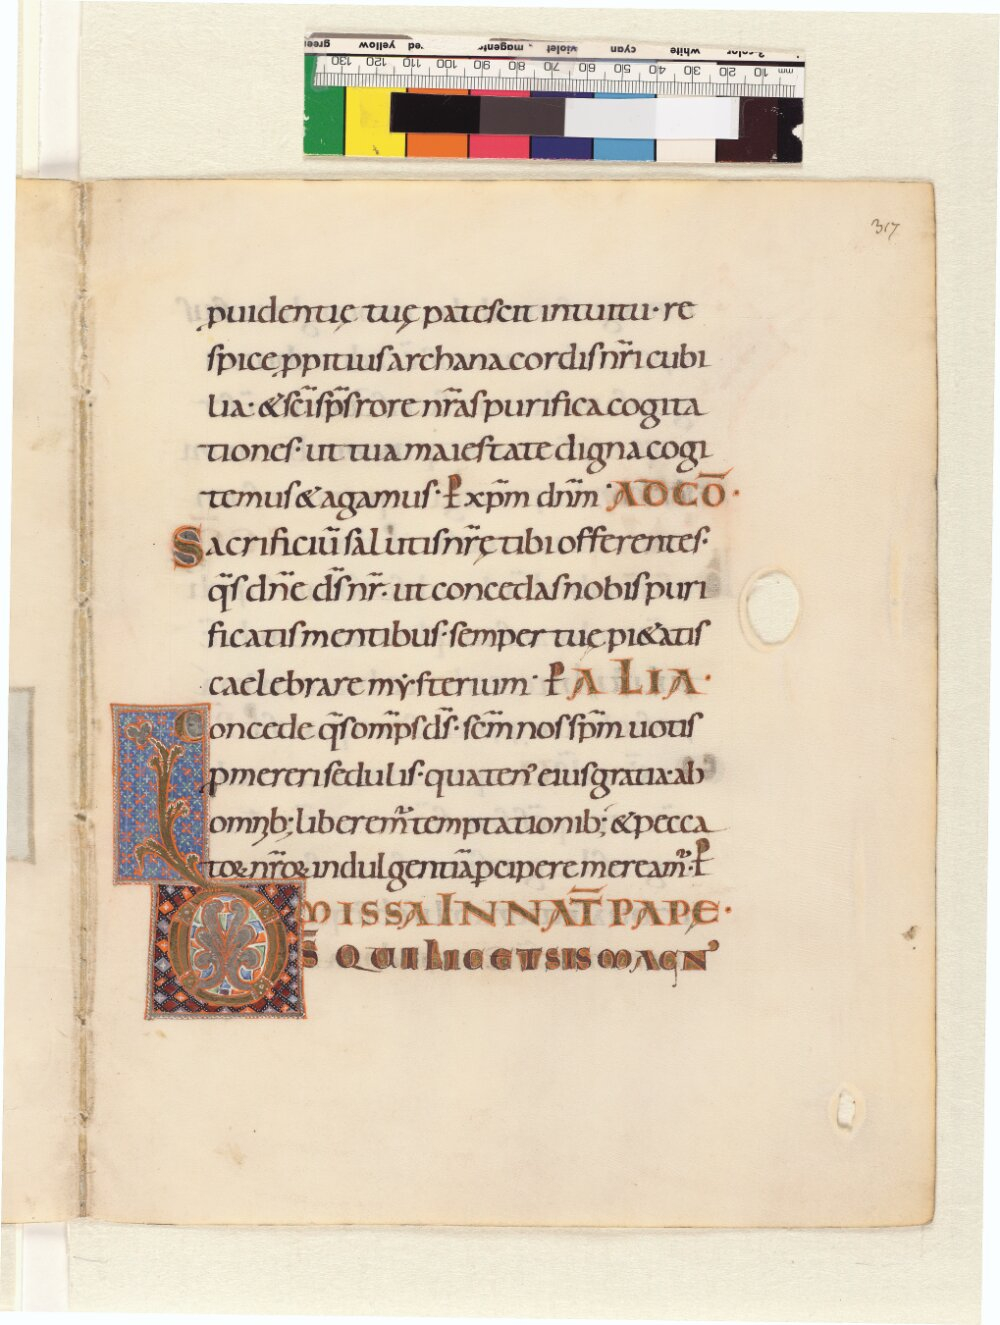 mm 10 20 30 40 50 60 70 80 90 100 110 120 130
white cyan violet magenta red yellow green
317
puidentię tuę patescit intuitu· re
spice ppitius archana cordis nr̃i cubi
lia· & sc̃i sp̃s rore nr̃as purifica cogita
tiones· ut tua maiestate digna cogi
temus & agamus· P xp̃m dnm̃ AD CŌ·
Sacrificiũ salutis nr̃ę tibi offerentes·
q̃s dñe d̃s nr̃· ut concedas nobis puri
ficatis mentibus· semper tuę pi&atis
caelebrare mẏsterium· P ALIA·
Concede q̃s omp̃s d̃s· scm̃ nos sp̃m uotis
pmereri sedulis· quaten̾ eius gratia· ab
omnib; liberem̃ temptationib; & pecca
toꝝ nr̃oꝝ indulgentiã pcipere meream̃· P
MISSA IN NAT̄ PAPE·
DS̄ QUI LICET SIS MAGN̾